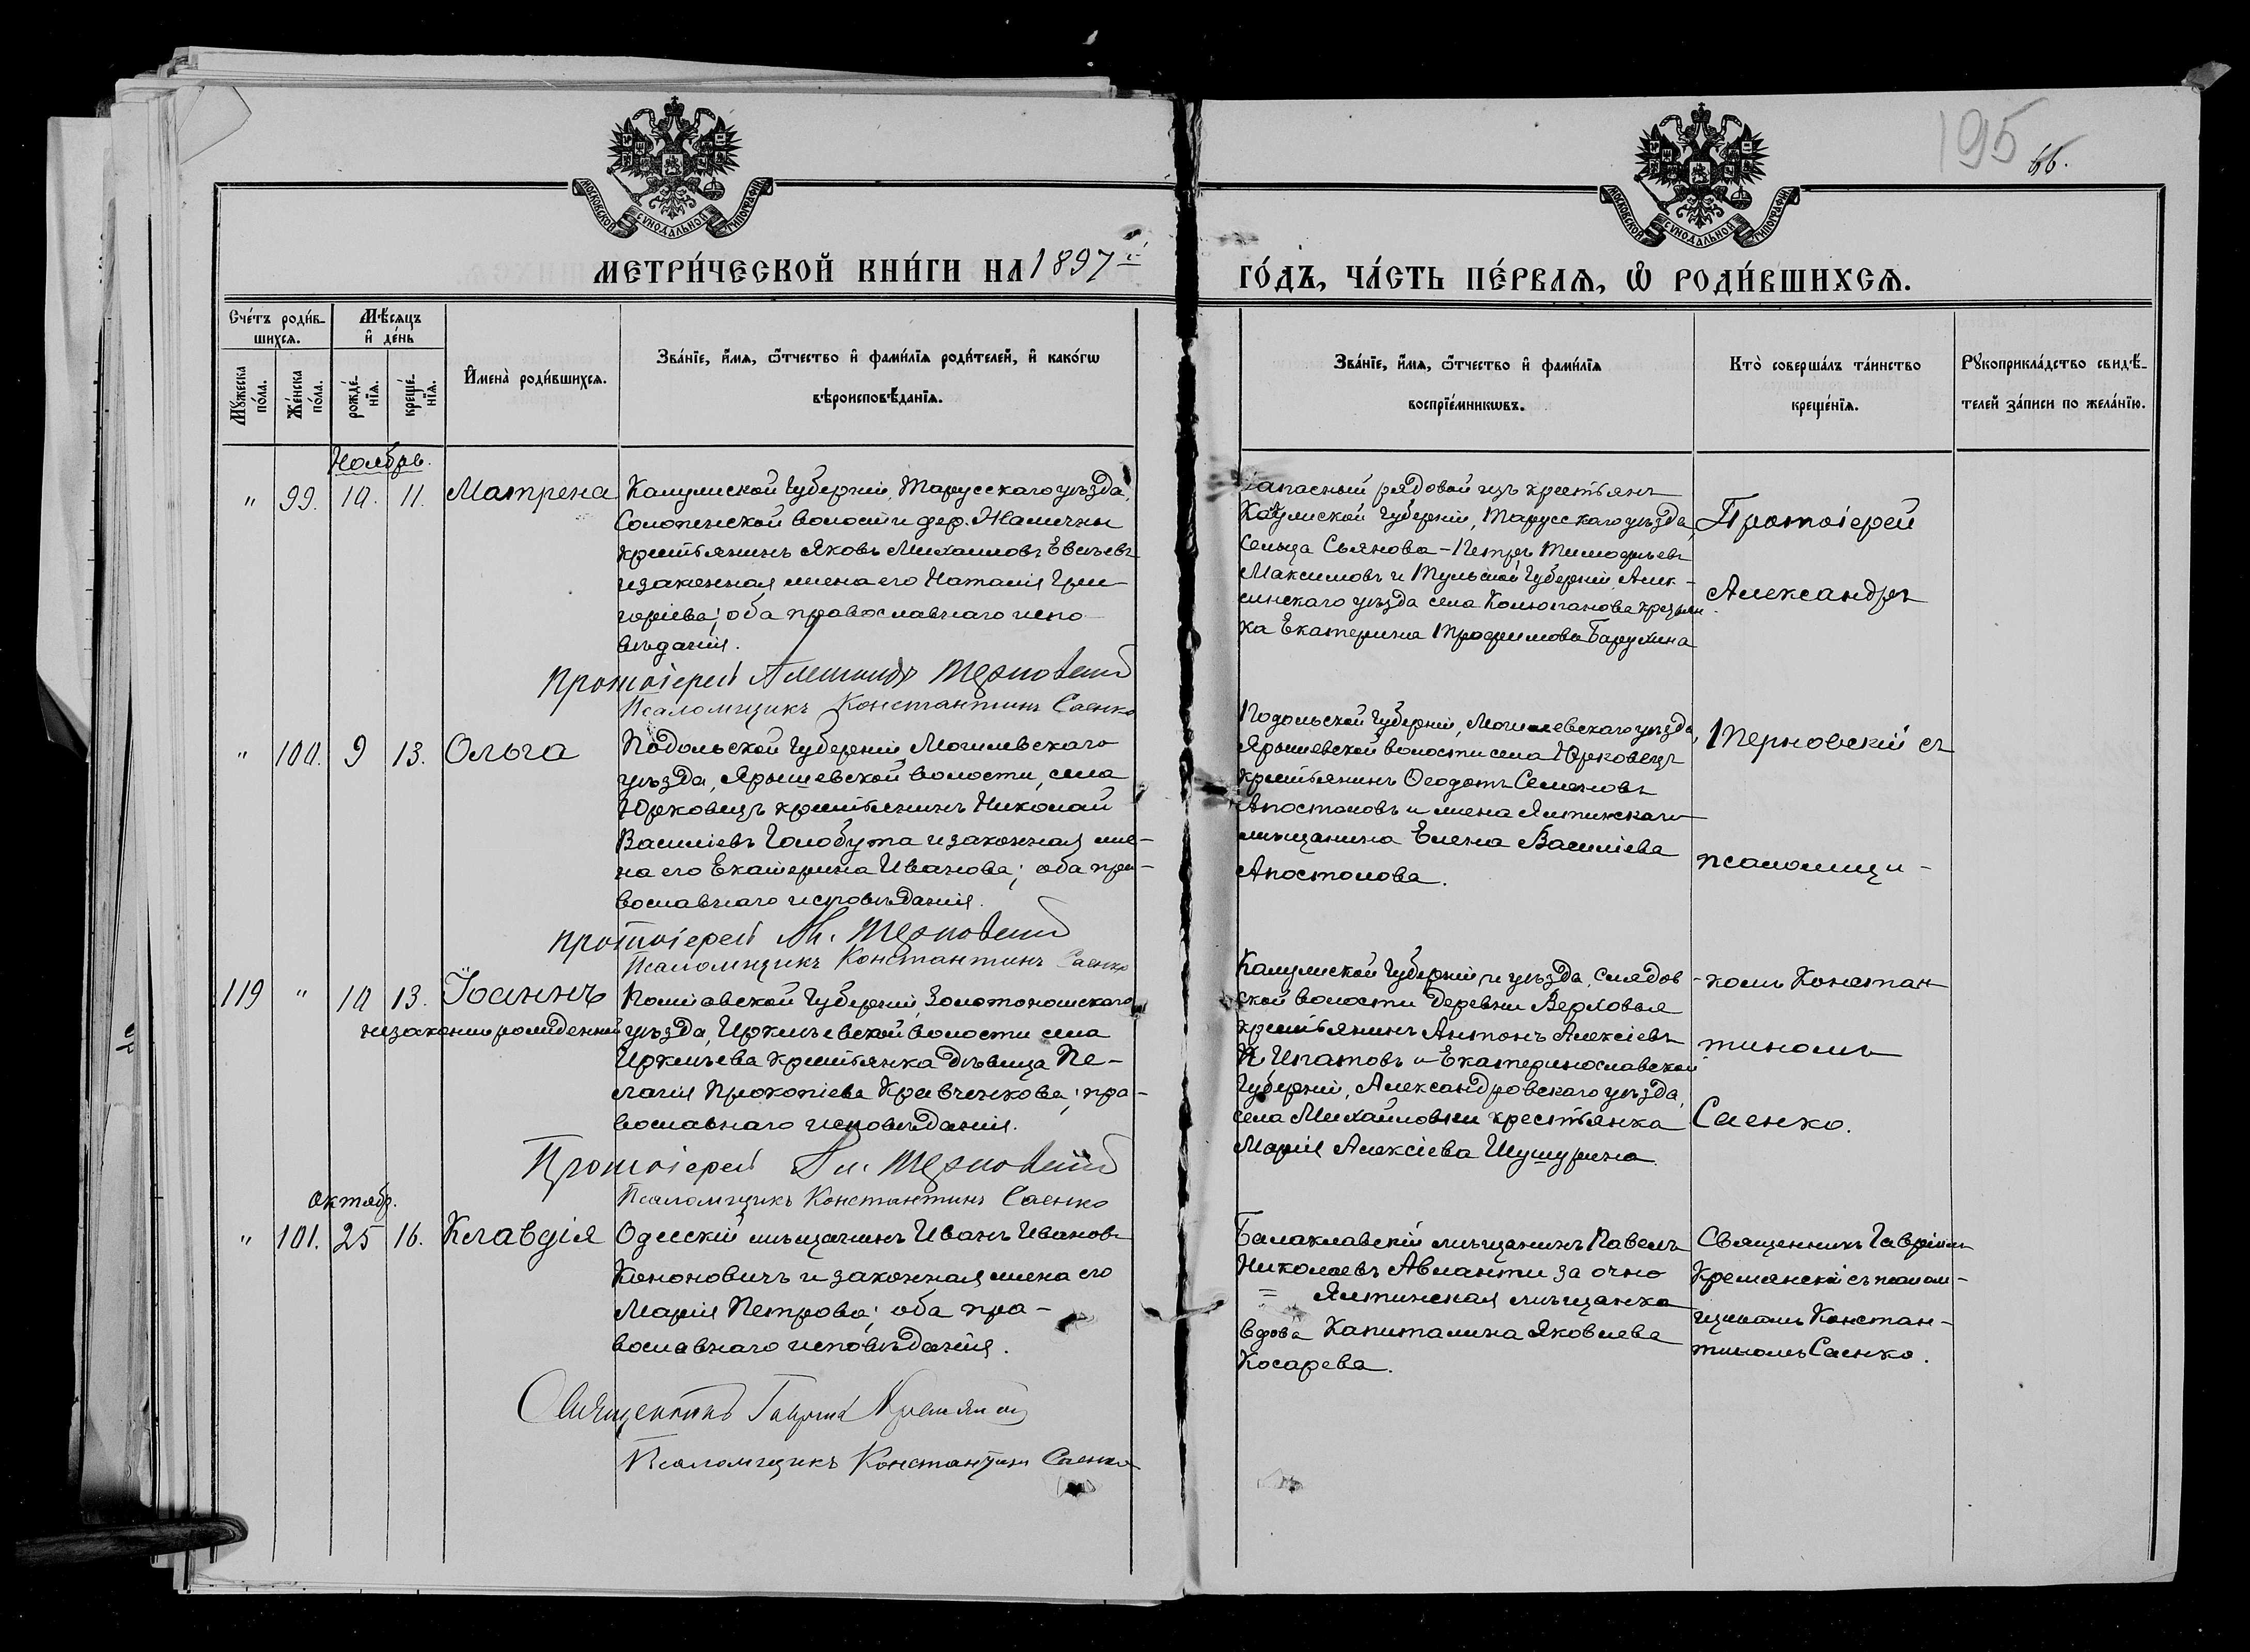 195 66.
МОСКОВСКОЙ СѴНОДАЛЬНОЙ ТИПОГРАФІИ
МОСКОВСКОЙ СѴНОДАЛЬНОЙ ТИПОГРАФІИ
МЕТРИ́ЧЕСКОЙ КНИ́ГИ НА 1897й
ГО́ДЪ, ЧА́СТЬ ПЕ́РВАѦ, Ѽ РОДИ́ВШИХСѦ.
Сче́тъ роди́в-
шихсѧ.
Мѣ́сяцъ
и де́нь
Мꙋ́жеска по́ла.
Же́нска по́ла.
рожде́-нїѧ.
креще́-нїѧ.
Имена̀ роди́вшихсѧ.
Зва́нїе, и́мѧ, ѻ́тчество и фами́лїѧ роди́телей, и како́гѡ
вѣроисповѣ́данїѧ.
Зва́нїе, и́мѧ, ѻ́тчество и фами́лїѧ
воспрїе́мникѡвъ.
Кто̀ соверша́лъ та́инство
креще́нїѧ.
Рꙋкоприкла́дство свидѣ́-
телей за́писи по жела́нїю.
Ноябрь.
" 99. 10. 11. Матрена
Калужской губерніи, Тарусскаго уѣзда,
Солопенской волости дер.
крестьянинъ Яковъ Михаиловъ
и законная жена его Наталія Гри-
горіева; оба православнаго испо-
вѣданія.
Протоіерей Александръ Терновскій
Псаломщикъ Константинъ Саенко
Запасный рядовой изъ крестьянъ
Калужской губерніи, Тарусскаго уѣзда,
Сельца Сьянова - Петръ Тимофеевъ
Максимовъ и Тульской губерніи Алек-
синскаго уѣзда села Колюпанова крестьян
ка Екатерина Трофимова Барухина
Протоіерей
Александръ
" 100. 9 13. Ольга
Подольской губерніи Могилевскаго
уѣзда, Ярышевской волости, села
Юрковецъ крестьянинъ Николай
Василіевъ Голобута и законная же-
на его Екатерина Иванова; оба пра-
вославнаго исповѣданія.
Протоіерей Ал. Терновскій
Псаломщикъ Константинъ Саенко
Подольской губерніи, Могилевскаго уѣзда,
Ярышевской волости села Юрковецъ
крестьянинъ Ѳеодотъ Семеновъ
Апостоловъ и жена Ялтинскаго
мѣщанина Елена Василіева
Апостолова.
Терновскій съ
псаломщи-
119 " 10 13. Іоаннъ
незаконно рожденный
Полтавской губерніи, Золотоношскаго
уѣзда, Ирклѣевской волости села
Ирклѣева крестьянка дѣвица Пе-
лагія Прокопіева Кравченкова; пра-
вославнаго исповѣданія.
Протоіерей Ал. Терновскій
Псаломщикъ Константинъ Саенко
Калужской губерніи, и уѣзда, Спядов
ской волости деревни Верховья
крестьянинъ Антонъ Алексіевъ
Ипатовъ и Екатеринославской
губерніи, Александровскаго уѣзда,
села Михайловки крестьянка
Марія Алексіева Шушурина.
-комъ Констан
тиномъ
Саенко.
Октябр.
" 101. 25 16. Клавдія
Одесскій мѣщанинъ Иванъ Ивановъ
Кононовичъ и законная жена его
Марія Петрова; оба пра-
вославнаго исповѣданія.
Священникъ Гавріилъ Кремянскій
Псаломщикъ Константинъ Саенко
Балаклавскій мѣщанинъ Павелъ
Николаевъ Авланти за очно
= Ялтинская мѣщанка
вдова Капиталина Яковлева
Косарева.
Священникъ Гавріилъ
Кремянскій съ псалом-
щикомъ Констан-
тиномъ Саенко.